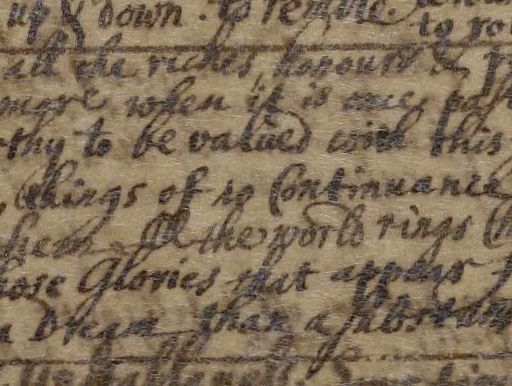 up & down. to remove.
to
all the riches honours &
more when it is once past
thy to be valued with this
things of no Continuance
the world rings
those Glories that appear
a Dream than a substan